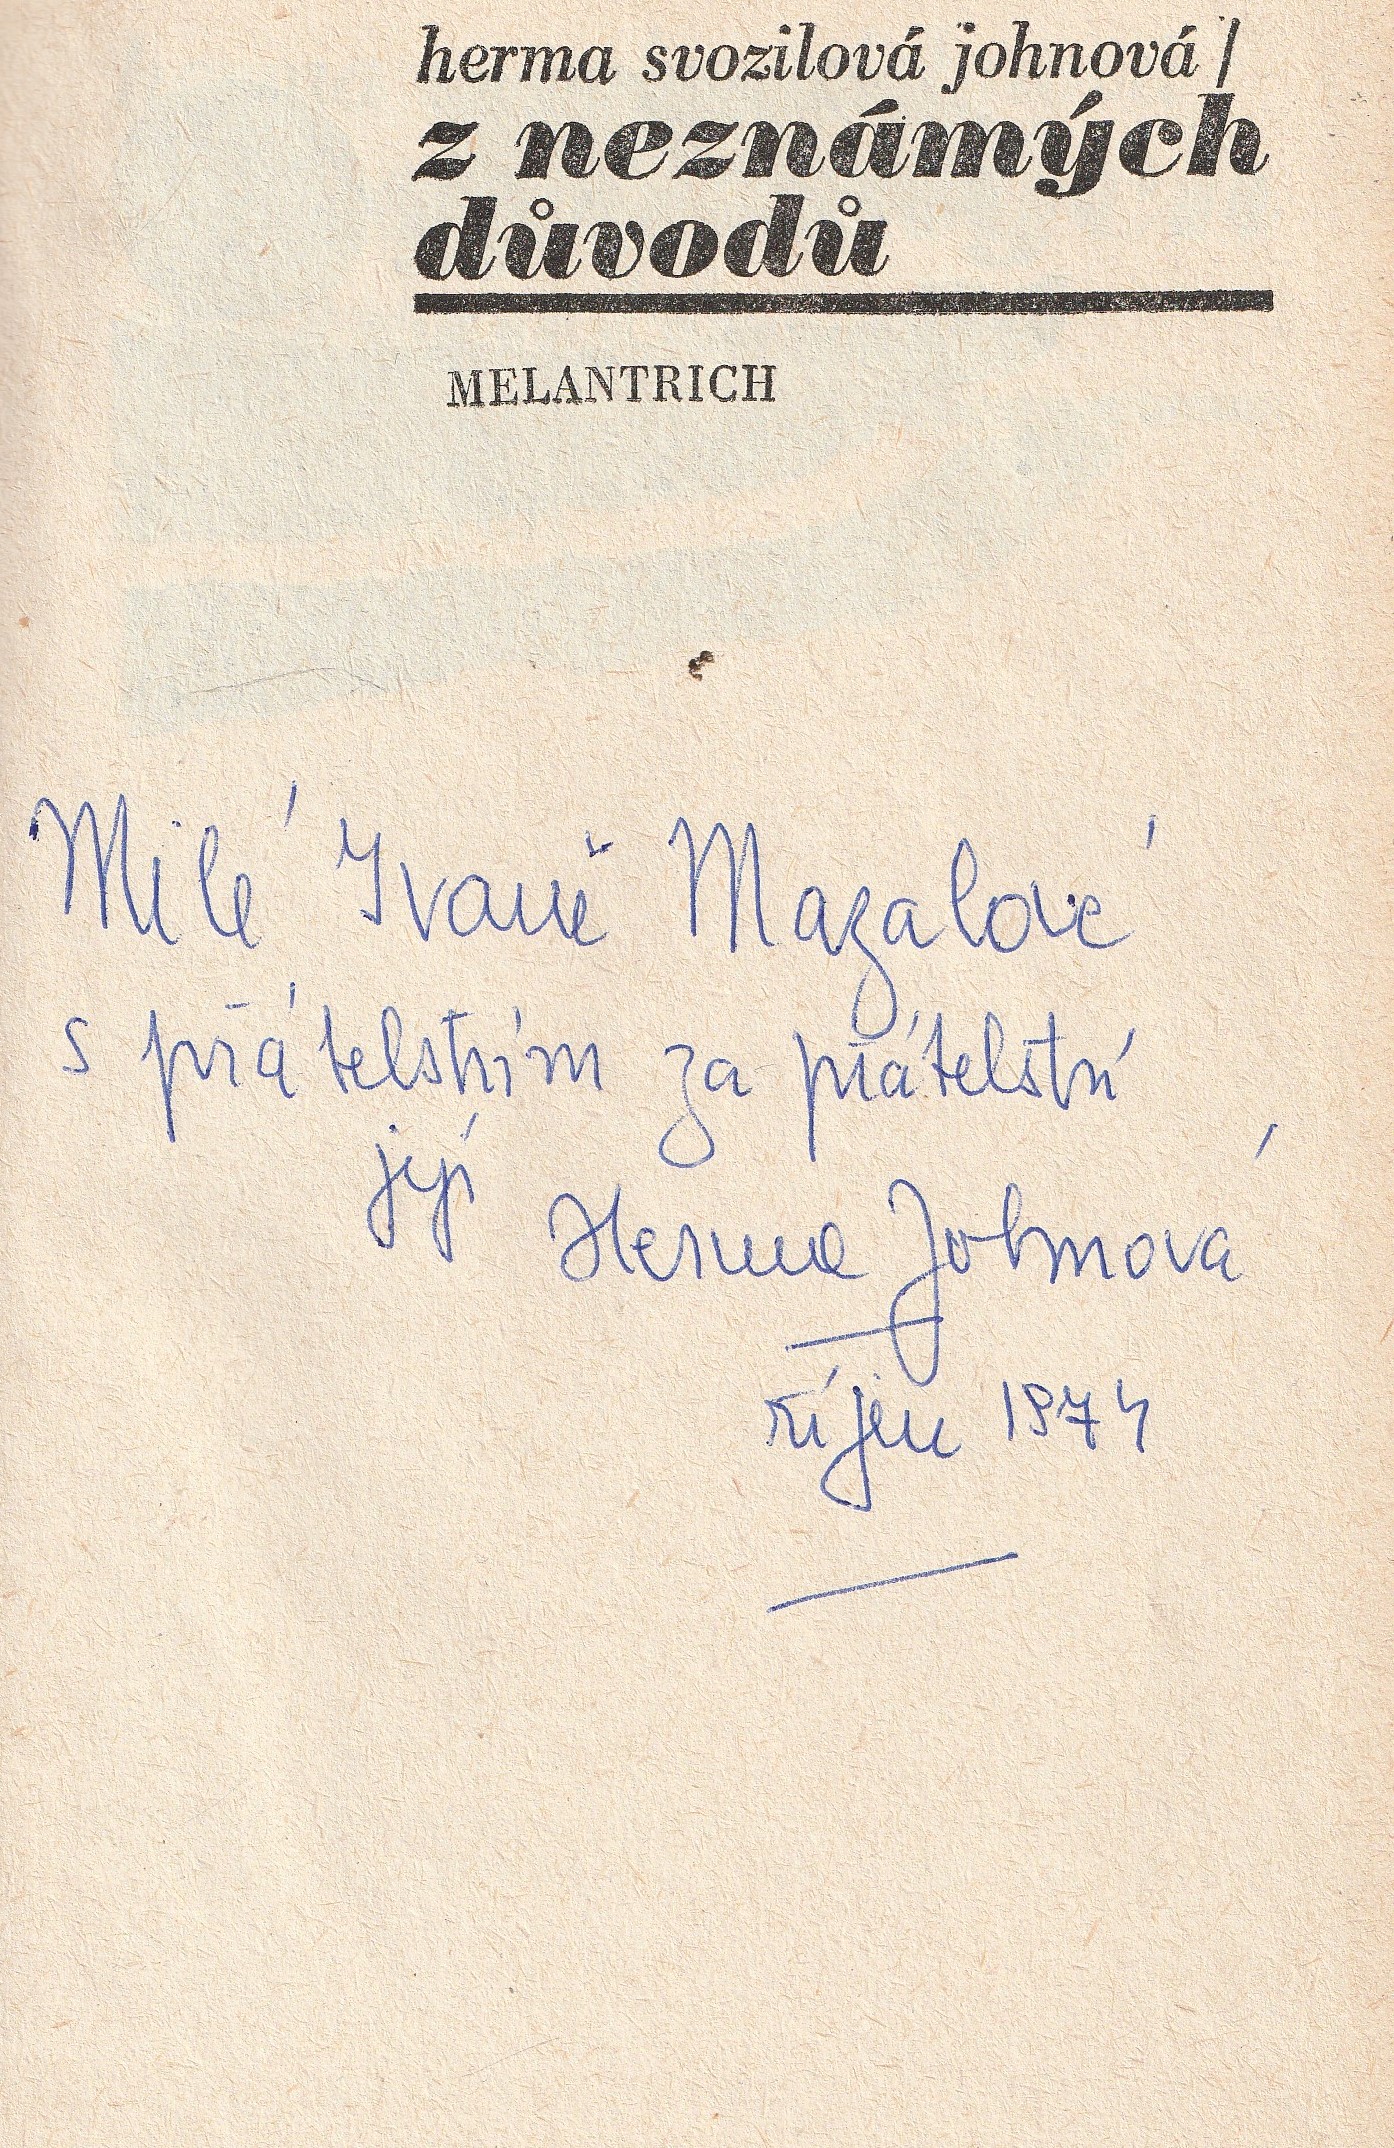 herma svozilová johnová /
z neznámých
důvodů
MELANTRICH
Milé Ivaně Mazalové
s přátelstvím za přátelství
její
Herma Johnová
říjen 1974